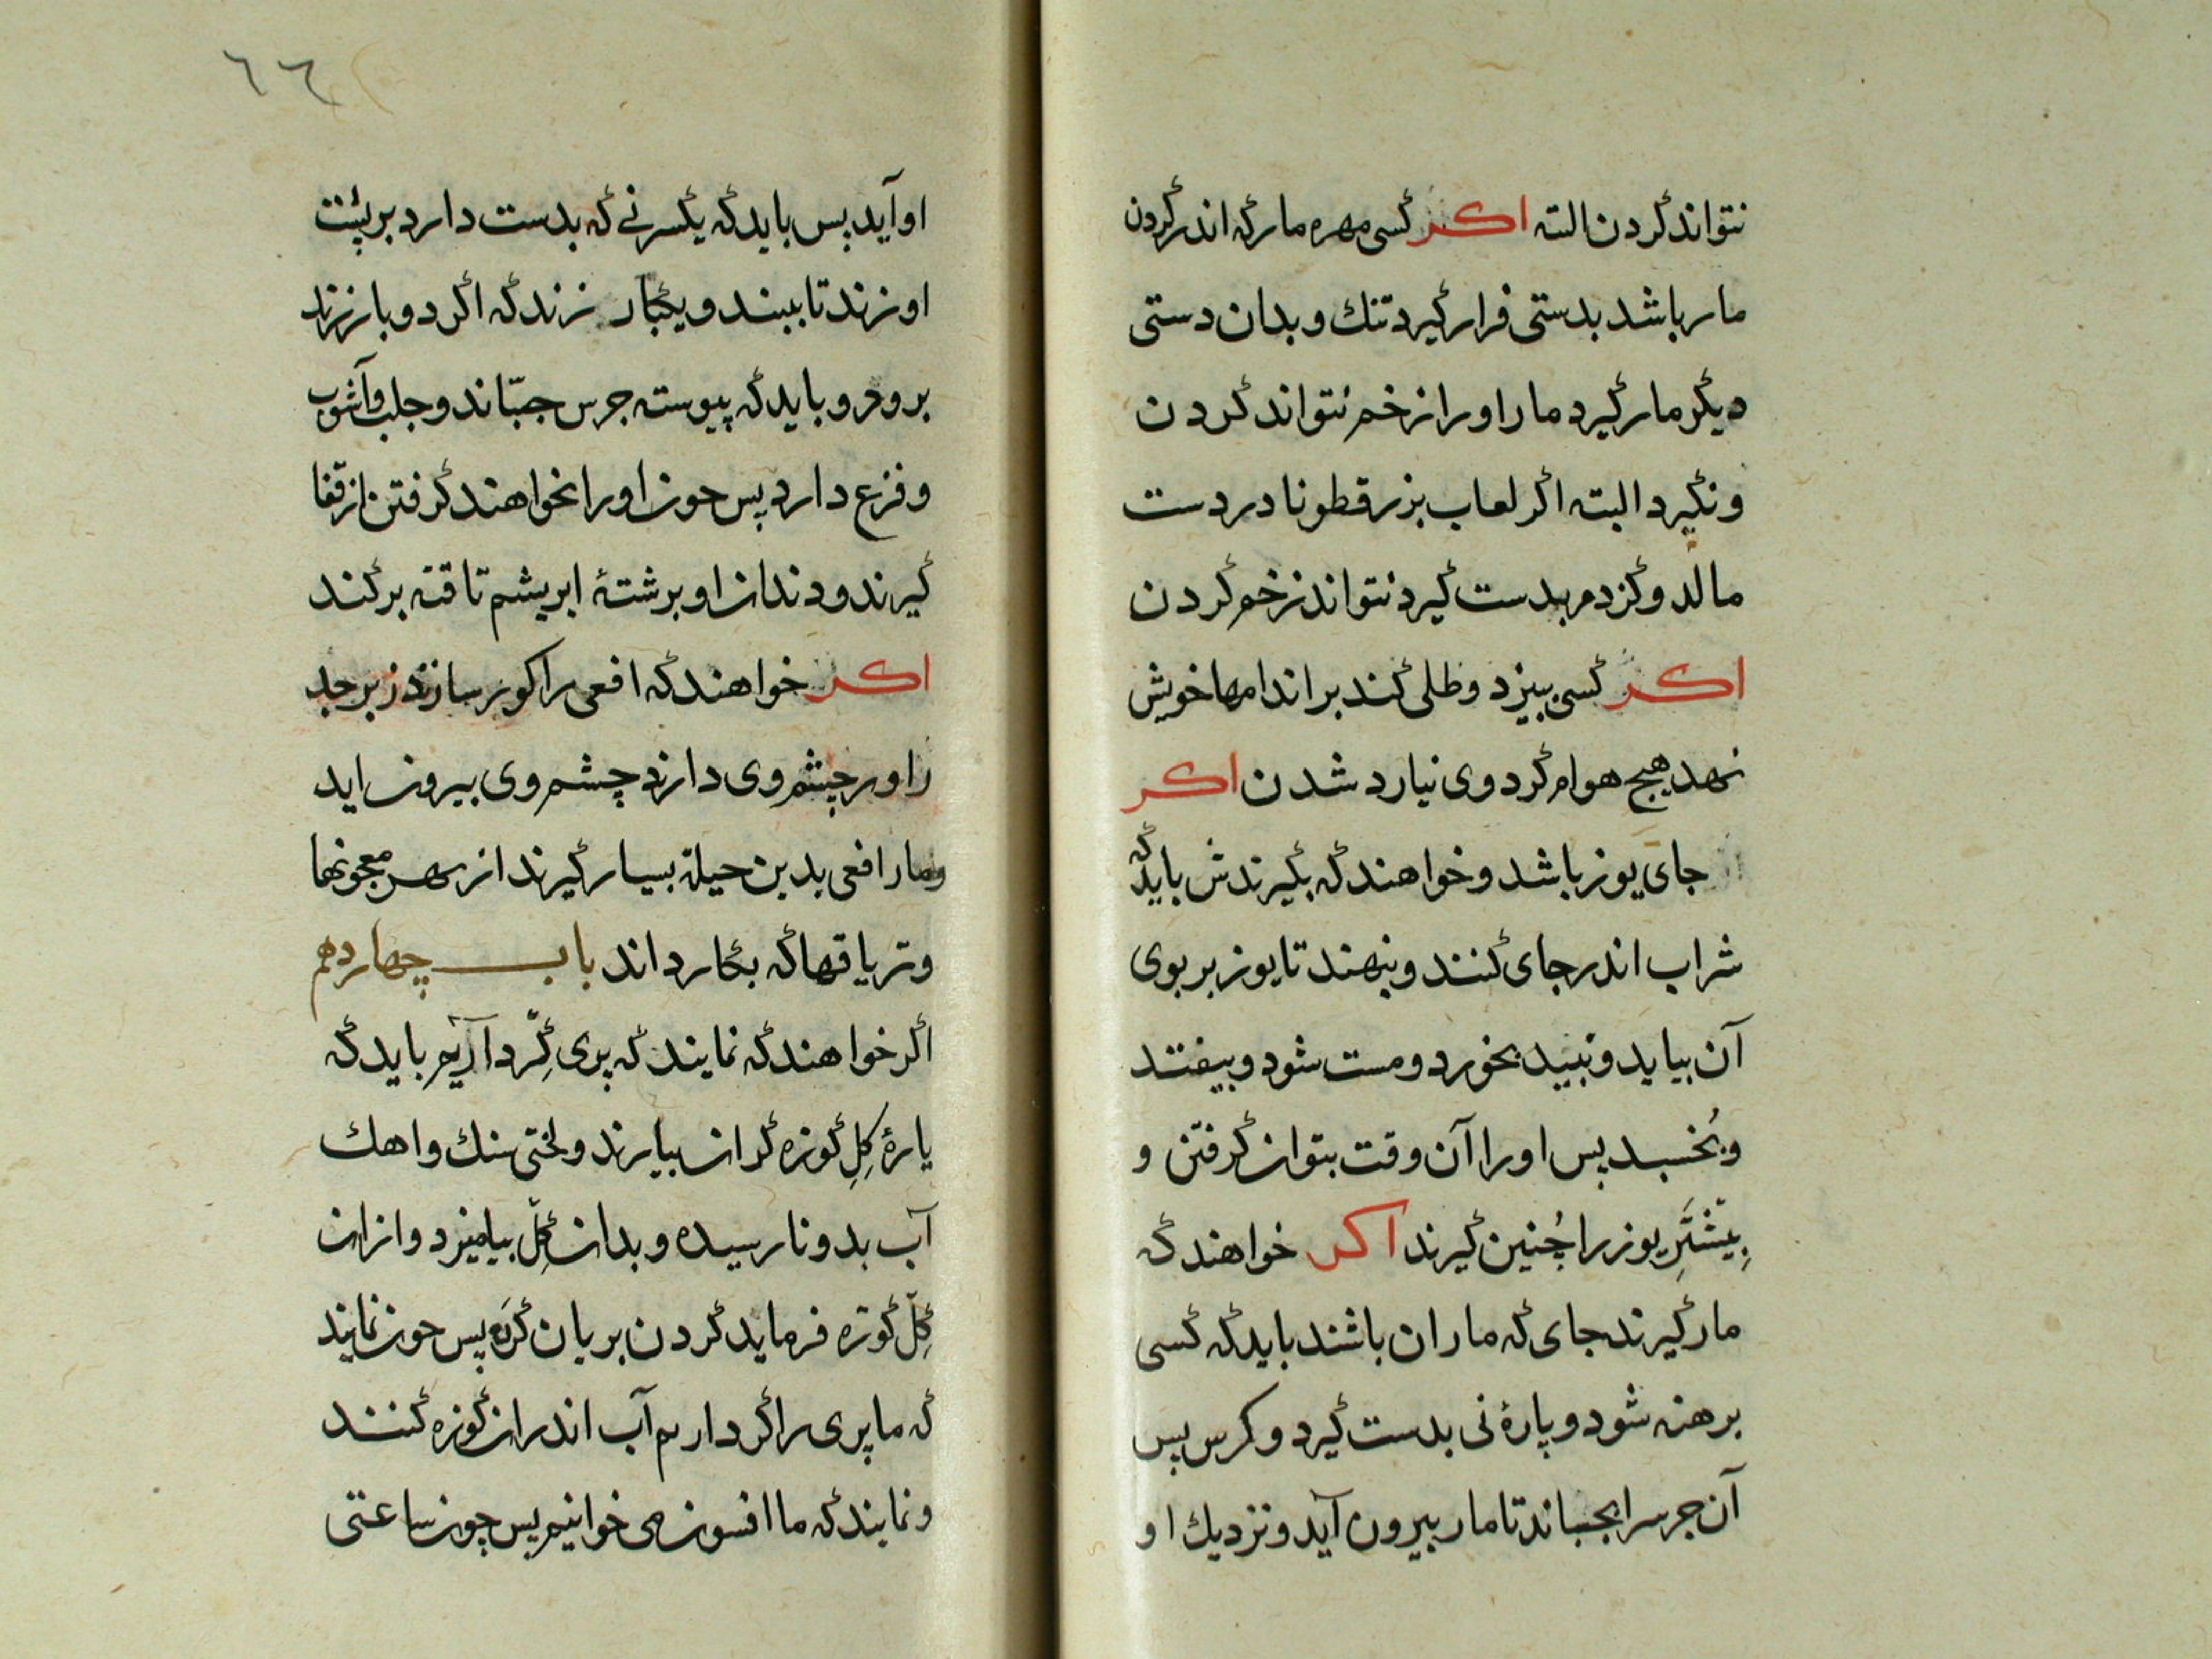 نتواند کردن البته اکر کسی مهره مار که اندر کردن
مار باشد بدستی فرار کیرد تنك و بدان دستی
دیکر مار کیرد مار اورا زخم نتواند کردن
ونکیرد البته اکر لعاب بزرقطونا در دست
مالد وکزدم بدست کیرد نتواند زخم کردن
اکر کسی بیزد وطلی کند بر اندامها خویش
نهد هیچ هوام کرد وی نیارد شدن اکر
جای یوز باشد وخواهند که بکیرندش باید که
شراب اندر جای کنند وبنهند تا یوز بر بوی
آن بیاید ونبید بخورد ومست شود وبیفتد
وبخسبد پس اورا آن وقت بتوان کرفتن و
بیشتر یوز را چنین کیرند اکر خواهند که
مار کیرند جای که ماران باشند باید که کسی
برهنه شود وپارۀ نی بدست کیرد وکرس پس
آن جرس را بجنباند تا مار بیرون آید ونزدیك او
٦٦
او آید پس باید که یکسر نی که بدست دارد بر پشت
او زند تا ببیند ویکبار زند که اکر دو بار زند
برود و باید که پیوسته جرس جنباند وجلب وآشوب
وفزع دارد پس چون اورا بخواهند کرفتن از قفا
کیرند ودندان او برشتۀ ابریشم تافته برکند
اکر خواهند که افعی را کور سازند زبرجد
را ور چشم وی دارند چشم وی بیرون اید
ومار افعی بدین حیلة بسیار کیرند از بهر معجونها
وتریاقها که بکار داند باب چهاردهم
اکر خواهند که نمایند که پری کرد آریم باید که
پارۀ کل کوزه کران بیارند ولختی سنك واهك
آب بدو نارسیده وبدان کل بیامیزد وازان
کل کوزه فرماید کردن بریان کرده پس چون نمایند
که ما پری را کرد اریم آب اندران کوزه کنند
ونمایند که ما افسون می خوانیم پس چون ساعتی